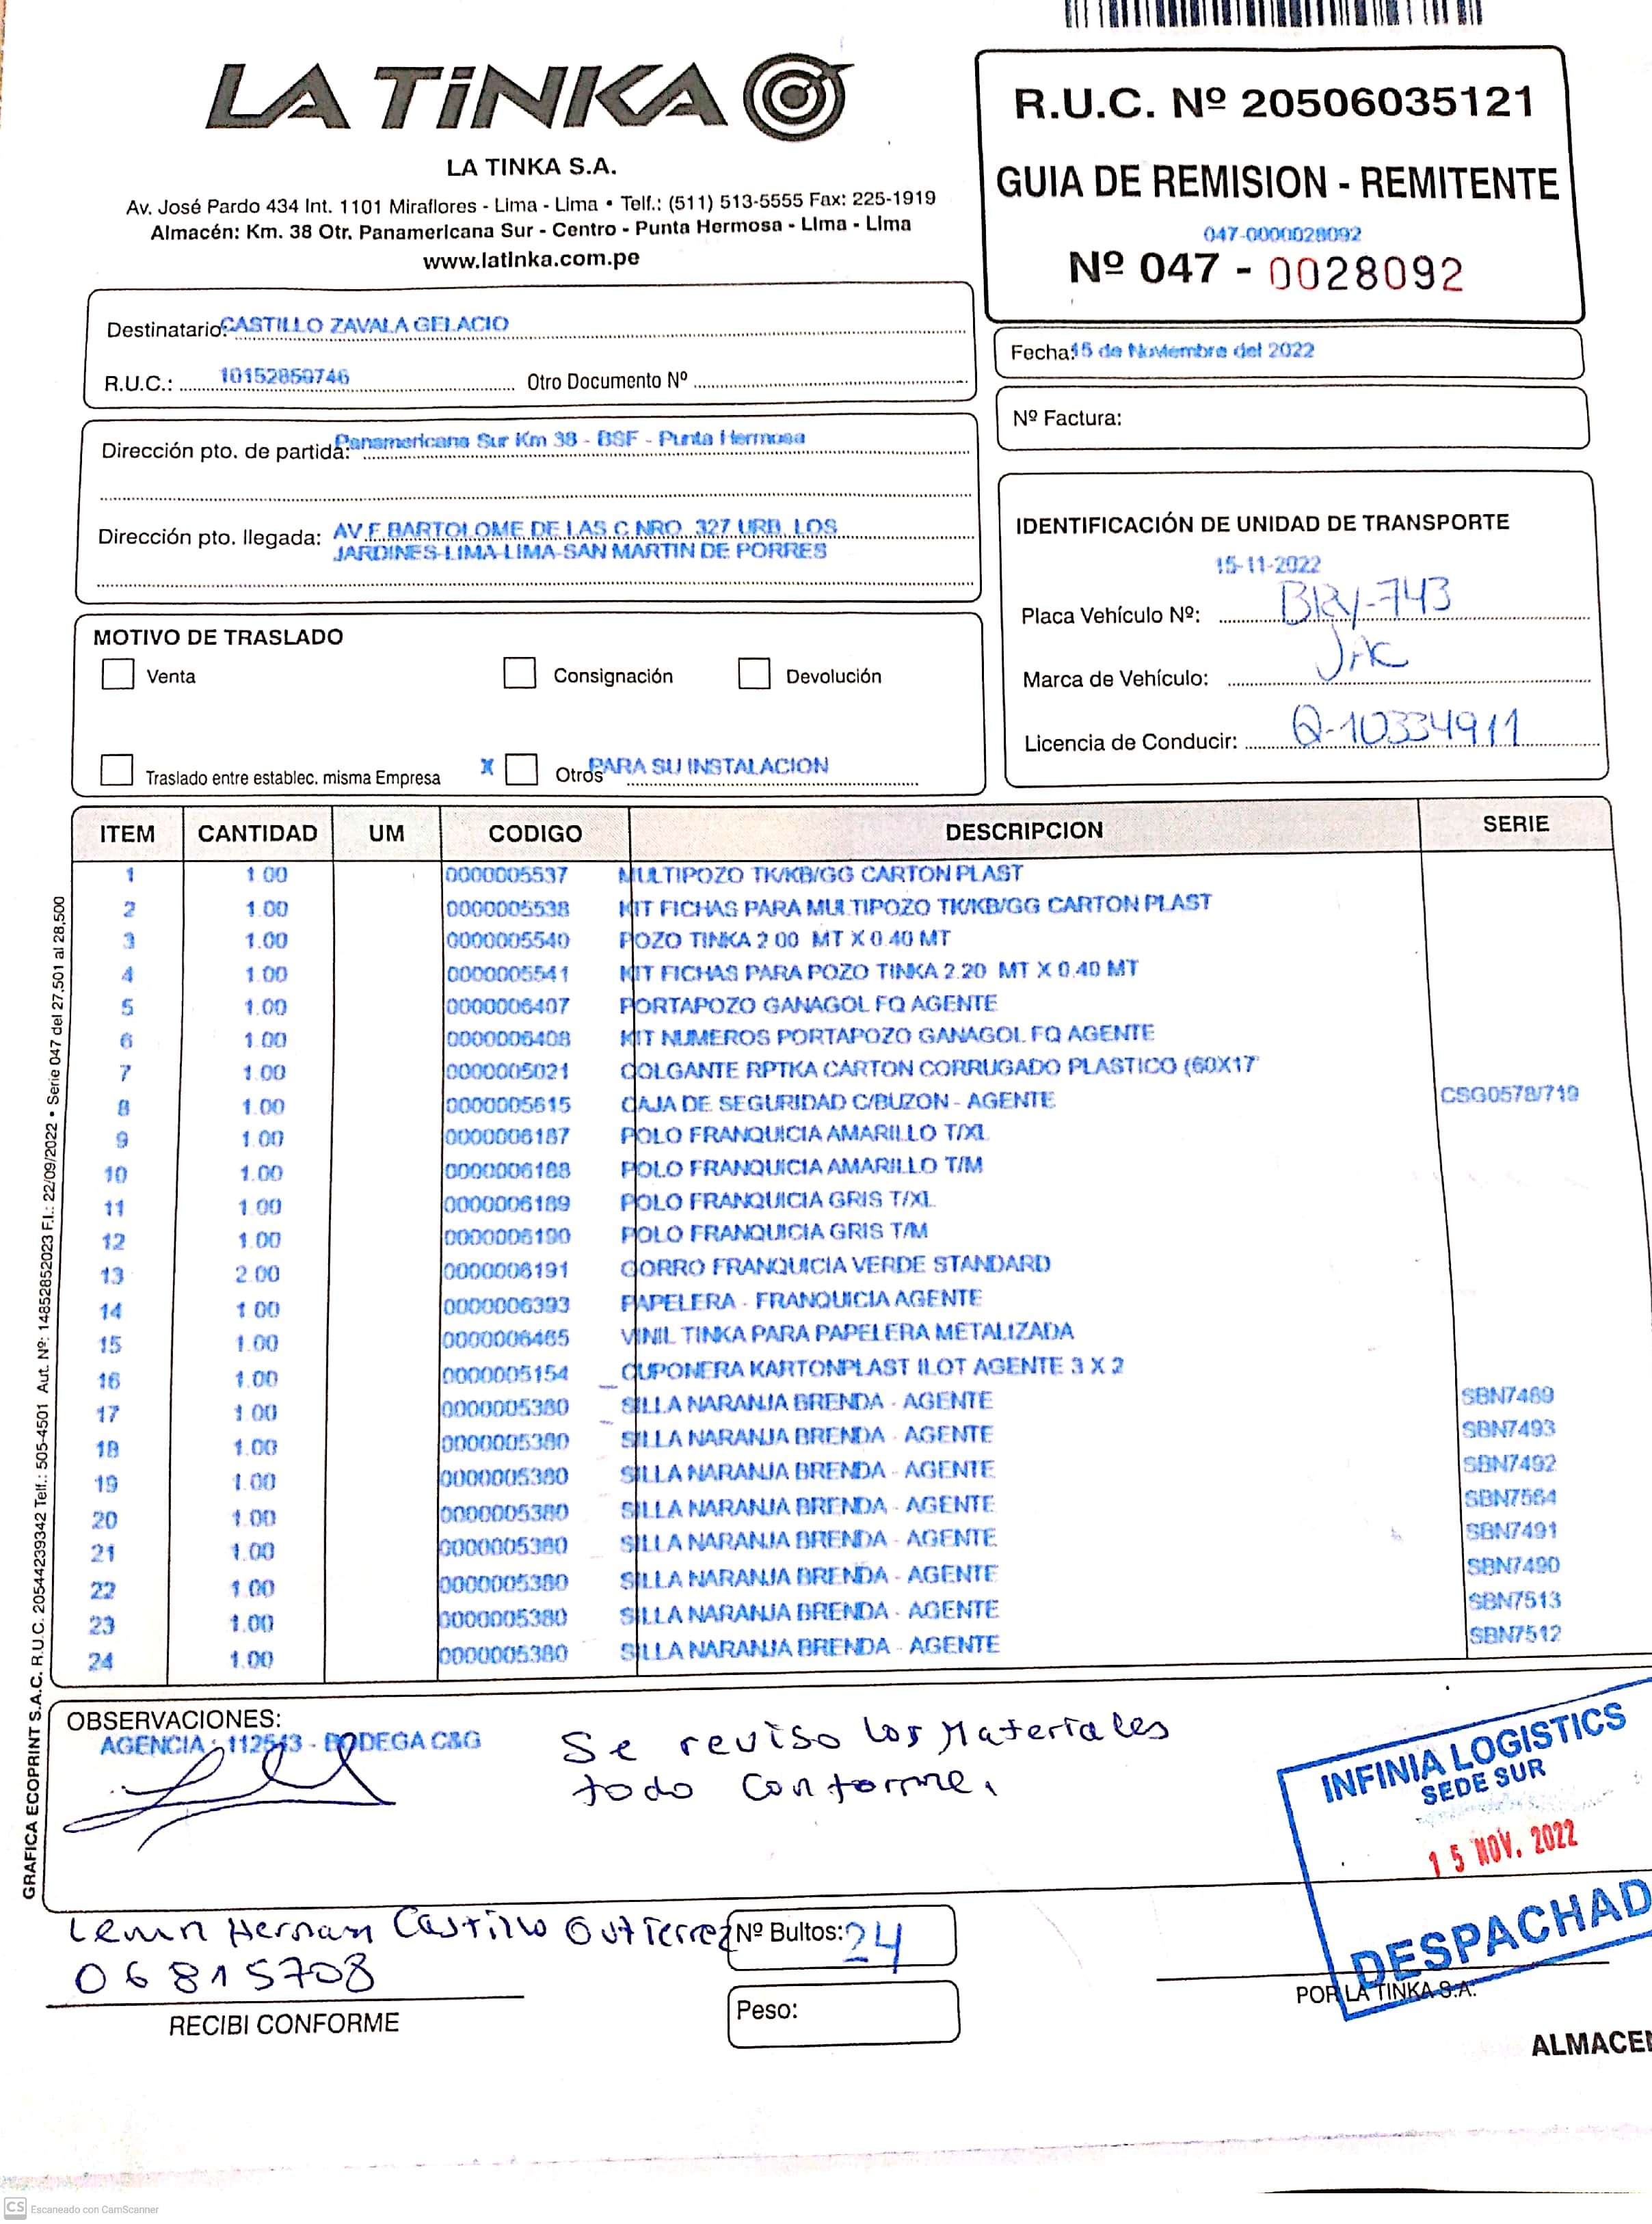 LA TiNKA
LA TINKA S.A.
Av. José Pardo 434 Int. 1101 Miraflores - Lima - Lima • Telf.: (511) 513-5555 Fax: 225-1919
Almacén: Km. 38 Otr. Panamericana Sur - Centro - Punta Hermosa - Lima - Lima
www.latinka.com.pe
R.U.C. Nº 20506035121
GUIA DE REMISION - REMITENTE
047-0000028092
Nº 047 - 0028092
Destinatario: CASTILLO ZAVALA GELACIO
R.U.C.: 10152850746 Otro Documento Nº
Fecha: 15 de Noviembre del 2022
Nº Factura:
Dirección pto. de partida: Panamericana Sur Km 38 - BSF - Punta Hermosa
Dirección pto. llegada: AV F BARTOLOME DE LAS C NRO. 327 URB. LOS
JARDINES-LIMA-LIMA-SAN MARTIN DE PORRES
IDENTIFICACIÓN DE UNIDAD DE TRANSPORTE
15-11-2022
Placa Vehículo Nº: BRY-743
Marca de Vehículo: JAC
Licencia de Conducir: Q-10334911
MOTIVO DE TRASLADO
Venta Consignación Devolución
Traslado entre establec. misma Empresa X Otros PARA SU INSTALACION
ITEM CANTIDAD UM CODIGO DESCRIPCION SERIE
1 1.00 0000005537 MULTIPOZO TK/KB/GG CARTON PLAST
2 1.00 0000005538 KIT FICHAS PARA MULTIPOZO TK/KB/GG CARTON PLAST
3 1.00 0000005540 POZO TINKA 2.00 MT X 0.40 MT
4 1.00 0000005541 KIT FICHAS PARA POZO TINKA 2.20 MT X 0.40 MT
5 1.00 0000006407 PORTAPOZO GANAGOL FQ AGENTE
6 1.00 0000006408 KIT NUMEROS PORTAPOZO GANAGOL FQ AGENTE
7 1.00 0000005021 COLGANTE RPTKA CARTON CORRUGADO PLASTICO (60X17
8 1.00 0000005615 CAJA DE SEGURIDAD C/BUZON - AGENTE CSG0578/719
9 1.00 0000006187 POLO FRANQUICIA AMARILLO T/XL
10 1.00 0000006188 POLO FRANQUICIA AMARILLO T/M
11 1.00 0000006189 POLO FRANQUICIA GRIS T/XL
12 1.00 0000006190 POLO FRANQUICIA GRIS T/M
13 2.00 0000006191 GORRO FRANQUICIA VERDE STANDARD
14 1.00 0000006393 PAPELERA - FRANQUICIA AGENTE
15 1.00 0000006465 VINIL TINKA PARA PAPELERA METALIZADA
16 1.00 0000005154 CUPONERA KARTONPLAST ILOT AGENTE 3 X 2
17 1.00 0000005380 SILLA NARANJA BRENDA - AGENTE SBN7469
18 1.00 0000005380 SILLA NARANJA BRENDA - AGENTE SBN7493
19 1.00 0000005380 SILLA NARANJA BRENDA - AGENTE SBN7492
20 1.00 0000005380 SILLA NARANJA BRENDA - AGENTE SBN7564
21 1.00 0000005380 SILLA NARANJA BRENDA - AGENTE SBN7491
22 1.00 0000005380 SILLA NARANJA BRENDA - AGENTE SBN7490
23 1.00 0000005380 SILLA NARANJA BRENDA - AGENTE SBN7513
24 1.00 0000005380 SILLA NARANJA BRENDA - AGENTE SBN7512
GRAFICA ECOPRINT S.A.C. R.U.C. 20544239342 Telf.: 505-4501 Aut. Nº: 14852852023 F.I.: 22/09/2022 • Serie 047 del 27,501 al 28,500
OBSERVACIONES:
AGENCIA : 112543 - BODEGA C&G
Se reviso los Materiales
todo conforme.
INFINIA LOGISTICS
SEDE SUR
15 NOV. 2022
DESPACHAD
Lenin Hernan Castillo Gutierrez
06815708
RECIBI CONFORME
Nº Bultos: 24
Peso:
POR LA TINKA S.A.
ALMACEN
CS Escaneado con CamScanner